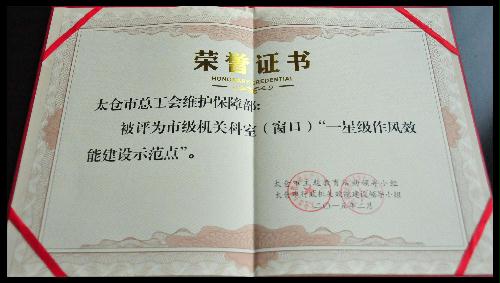 荣誉证书
HONORARY CREDENTIAL
太仓市总工会维护保障部:
被评为市级机关科室（窗口）“一星级作风效
能建设示范点”。
太仓市主题教育活动领导小组
领导小组
二〇一〇年二月